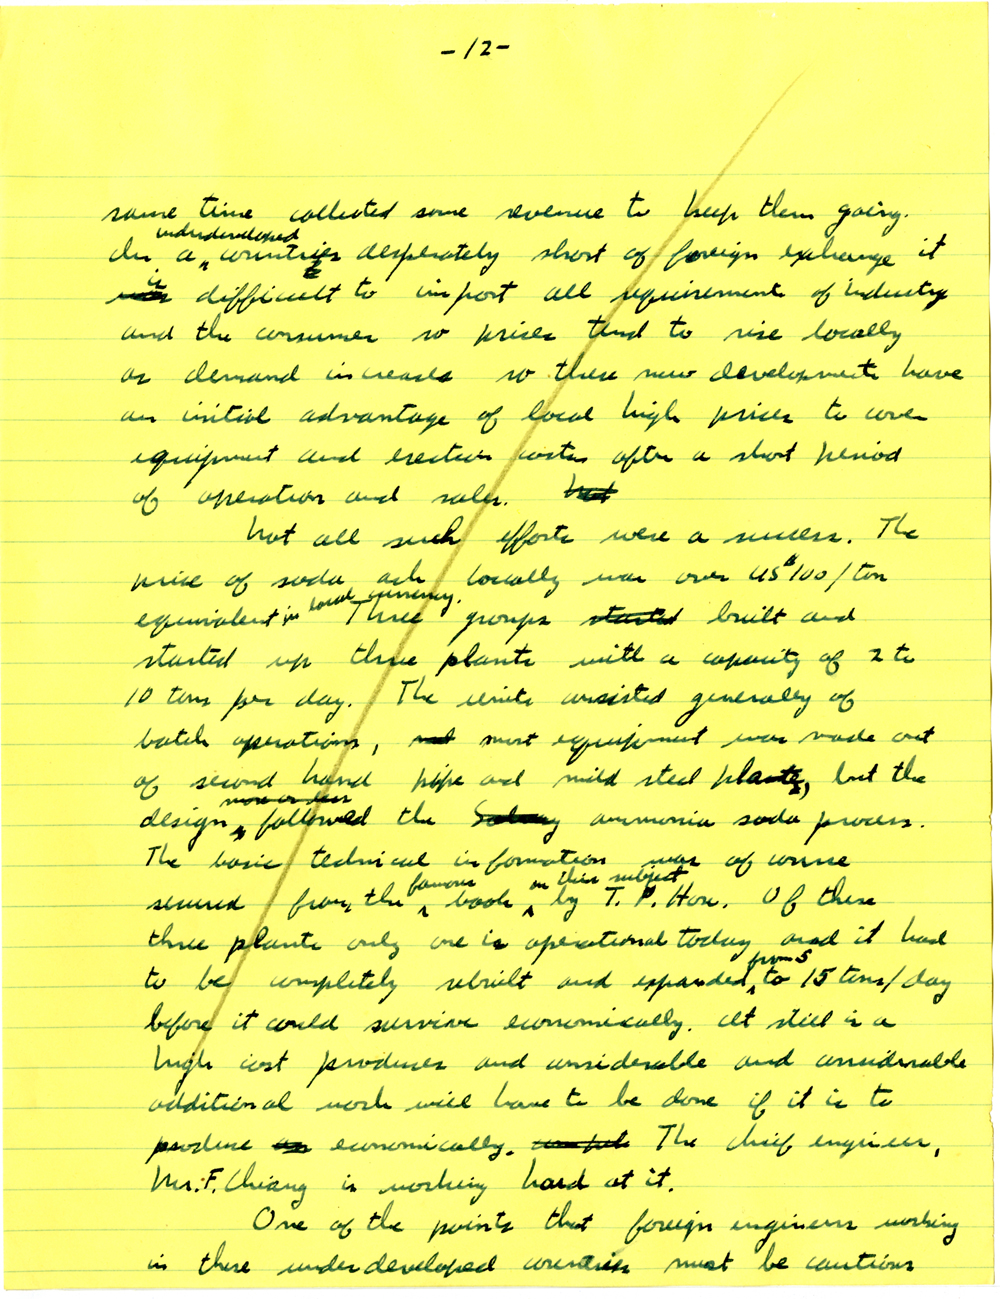 -12-
same time collected some revenue to keep them going.
underdeveloped
In a countries desperately short of foreign exchange it
is
difficult to import all requirements of industry
and the consumer so prices tend to rise locally
as demand increases so these new developments have
an initial advantage of local high prices to cover
equipment and erection costs after a short period
of operation and sales. Not
Not all such efforts were a success. The
price of soda ash locally was over US$100/ton
equivalent in local currency. Three groups started built and
started up three plants with a capacity of 2 to
10 tons per day. The units consisted generally of
batch operations, and most equipment was made out
of second hand pipe and mild steel plants, but the
more or less
design followed the Solvay ammonia soda process.
The basic technical information was of course
famous on this subject
secured from the book by T. P. Hou. Of these
three plants only one is operational today and it had
from 5
to be completely rebuilt and expanded to 15 tons/day
before it could survive economically. It still is a
high cost producer and considerable and considerable
additional work will have to be done if it is to
produce economically. The chief engineer,
Mr. F. Chiang is working hard at it.
One of the points that foreign engineers working
in these underdeveloped countries must be cautious